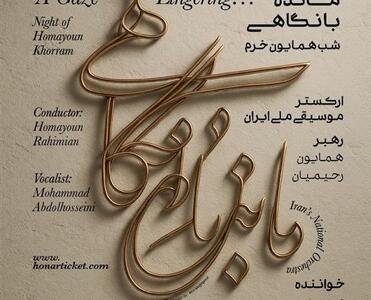 A Gaze Lingering...
Night of
Homayoun
Khorram
Conductor:
Homayoun
Rahimian
Vocalist:
Mohammad
Abdolhosseini
www.
honarticket.com
مانده
با نگاهی
شب همایون خرم
ارکستر
موسیقی ملی ایران
رهبر
همایون
رحیمیان
Iran's National Orchestra
خواننده